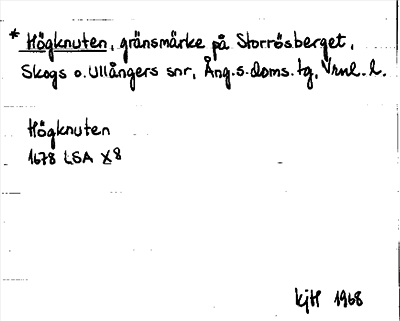 * Högknuten, gränsmärke på Storrösberget,
Skogs o. Ullångers snr, Ång. s. doms. tg, Vrnl. l.
Högknuten
1678 LSA X8
kjH 1968